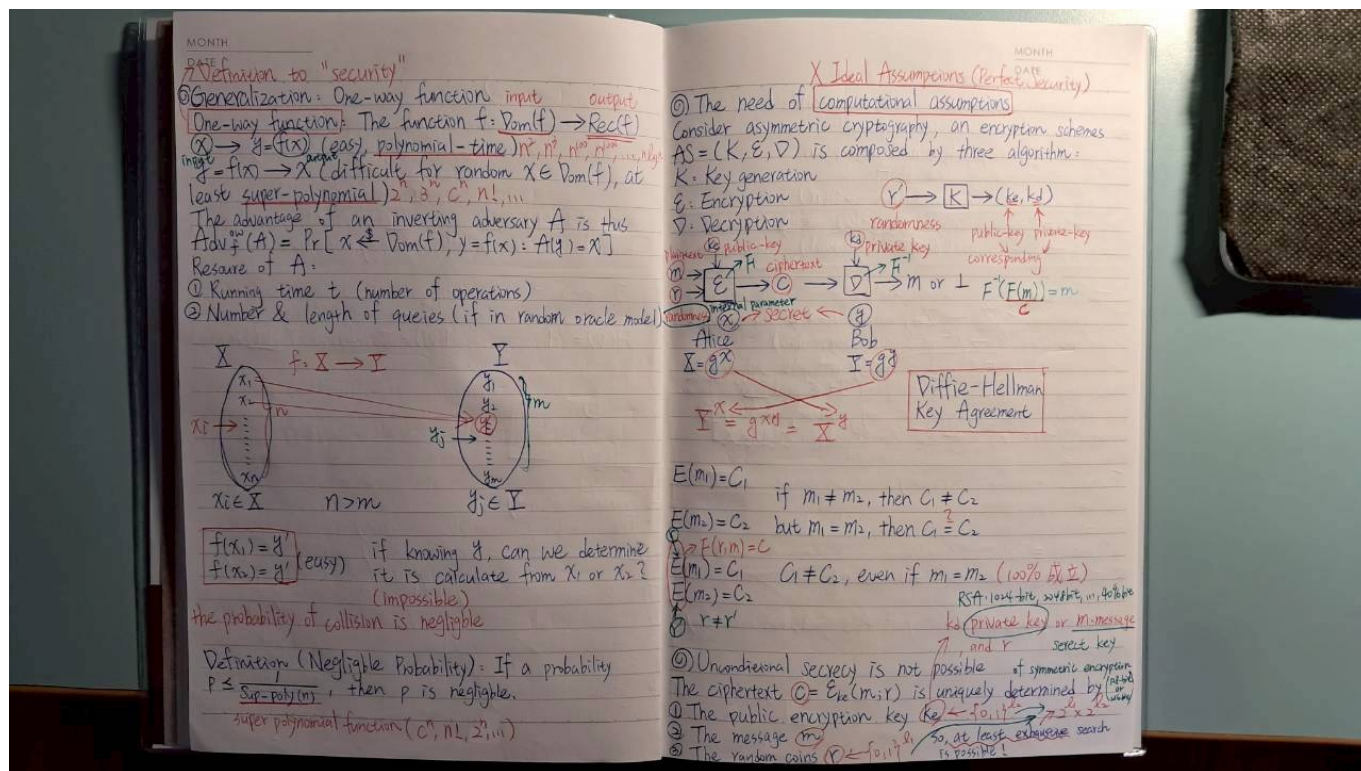 MONTH
DATE
Definition to "security"
Generalization: One-way function input output
One-way function: The function f: Dom(f) → Rec(f)
x → y=f(x) (easy, polynomial-time)
input output
y=f(x) → x (difficult for random x∈Dom(f), at
least super-polynomial) 2ⁿ, 3ⁿ, cⁿ, n!, ...
The advantage of an inverting adversary A is thus
Adv_f^ow(A) = Pr[x ←$ Dom(f), y=f(x): A(y)=x]
Resoure of A:
① Running time t (number of operations)
② Number & length of queies (if in random oracle model)
X f: X → Y Y
x₁ y₁
x₂ y₂ m
n
xi → yj →
xn ym
xi∈X n>m yj∈Y
f(x₁)=y' (easy) if knowing y, can we determine
f(x₂)=y' it is calculate from x₁ or x₂?
(impossible)
the probability of collision is negligble
Definition (Negligble Probability): If a probability
p ≤ 1/Sup-poly(n), then p is negligble.
super polynomial function (cⁿ, n!, 2ⁿ, ...)
MONTH
DATE
X Ideal Assumptions (Perfect Security)
◎ The need of computational assumptions
Consider asymmetric cryptography, an encryption schemes
AS=(K, E, D) is composed by three algorithm:
K: Key generation
E: Encryption r → K → (ke, kd)
D: Decryption randomness public-key private-key
corresponding
ke public-key kd private key
plaintext F ciphertext F⁻¹
m → E → C → D → m or ⊥ F⁻¹(F(m))=m
r C
randomness internal parameter
x → secret ← y
Alice Bob
X=g^x Y=g^y
Diffie-Hellman
Key Agreement
Y^x = g^xy = X^y
E(m₁)=C₁
if m₁≠m₂, then C₁≠C₂
E(m₂)=C₂ but m₁=m₂, then C₁≟C₂
E(r,m)=C
E(m₁)=C₁ C₁≠C₂, even if m₁=m₂ (100% 成立)
E(m₂)=C₂
r≠r'
RSA: 1024-bit, 2048bit, ...,
kd private key or m-message
, and r serect key
of symmetric encryption
◎ Uncondicional secrecy is not possible
The ciphertext C=E_ke(m;r) is uniquely determined by
① The public encryption key ke ← {0,1}^l₂ → 2^l₁×2^l₂
② The message m So, at least exhausue search
③ The random coins r ← {0,1}^l₁ is possible!